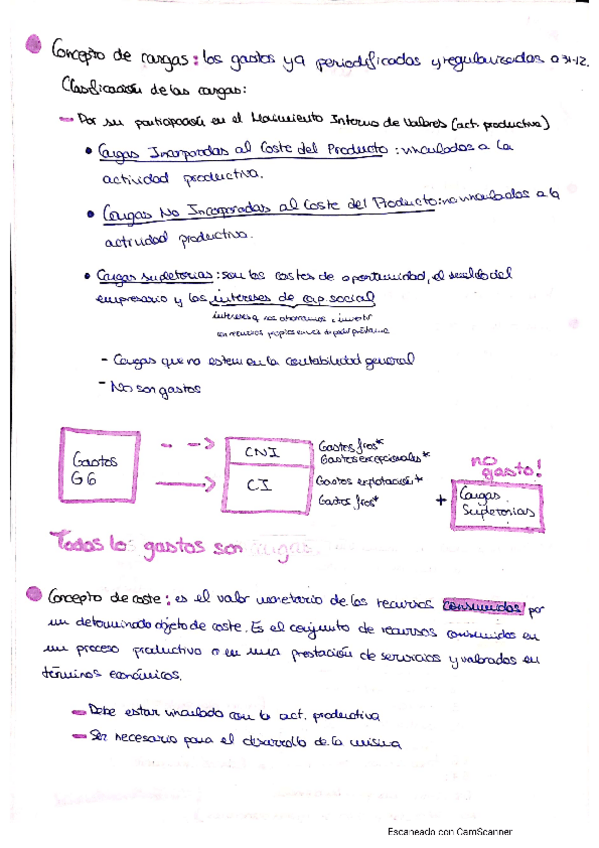 Concepto de cargas: los gastos ya periodificados y regularizados a 31-12.
Clasificación de las cargas:
Por su participación en el Movimiento Interno de Valores (act. productiva)
• Cargas Incorporadas al Coste del Producto: vinculados a la
actividad productiva.
• Cargas No Incorporadas al Coste del Producto: no vinculados a la
actividad productiva.
• Cargas supletorias: son los costes de oportunidad, el sueldo del
empresario y los intereses de cap. social
intereses q nos ahorramos x invertir
con recursos propios en vez de pedir préstamo
- Cargas que no esten en la contabilidad general
- No son gastos
Gastos
G6
CNI
CI
Gastos fros*
Gastos excepcionales*
Gastos explotación*
Gastos fros*
+
no
gasto!
Cargas
Supletorias
Todos los gastos son cargas
Concepto de coste: es el valor monetario de los recursos consumidos por
un determinado objeto de coste. Es el conjunto de recursos consumidos en
un proceso productivo o en una prestación de servicios y valorados en
términos económicos.
Debe estar vinculado con la act. productiva
Ser necesario para el desarrollo de la misma
Escaneado con CamScanner